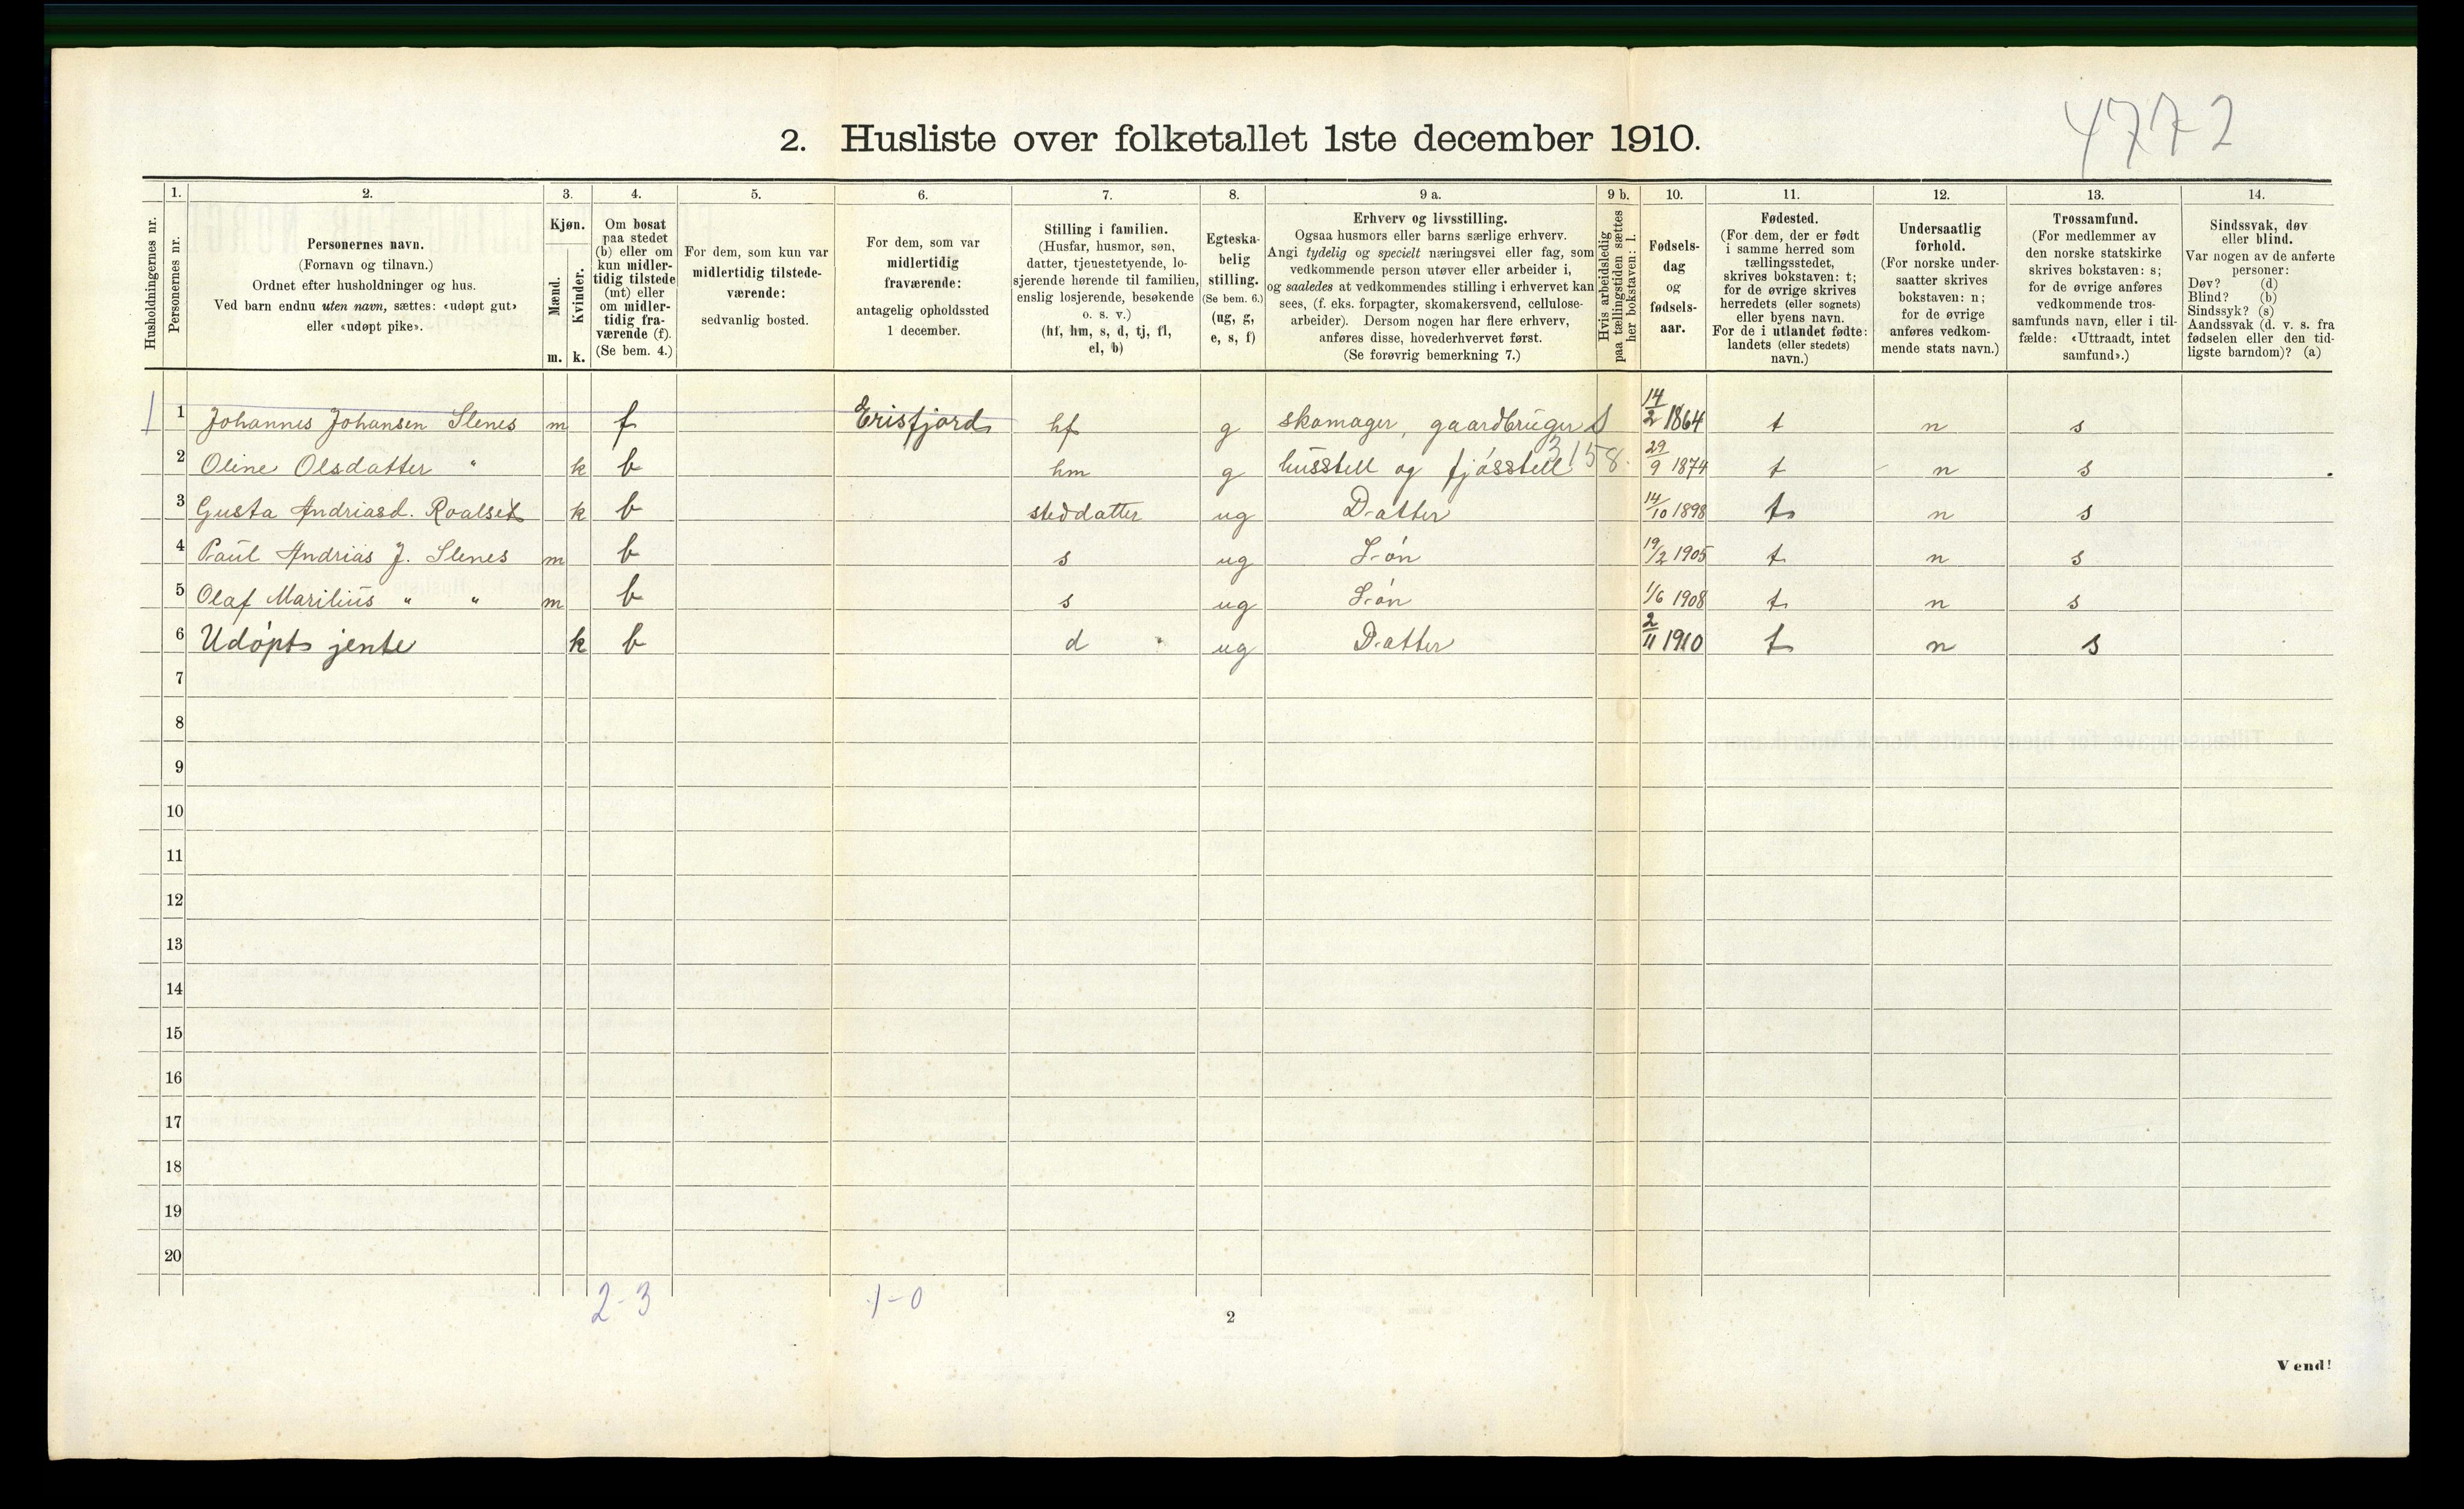 4772
2. Husliste over folketallet 1ste december 1910.
Husholdningernes nr.
1.
Personernes nr.
2.
Personernes navn.
(Fornavn og tilnavn.)
Ordnet efter husholdninger og hus.
Ved barn endnu uten navn, sættes: «udøpt gut»
eller «udøpt pike».
3.
Kjøn.
Mænd.
Kvinder.
m. k.
4.
Om bosat
paa stedet
(b) eller om
kun midler-
tidig tilstede
(mt) eller
om midler-
tidig fra-
værende (f).
(Se bem. 4.)
5.
For dem, som kun var
midlertidig tilstede-
værende:
sedvanlig bosted.
6.
For dem, som var
midlertidig
fraværende:
antagelig opholdssted
1 december.
7.
Stilling i familien.
(Husfar, husmor, søn,
datter, tjenestetyende, lo-
sjerende hørende til familien,
enslig losjerende, besøkende
o. s. v.)
(hf, hm, s, d, tj, fl,
el, b)
8.
Egteska-
belig
stilling.
(Se bem. 6.)
(ug, g,
e, s, f)
9 a.
Erhverv og livsstilling.
Ogsaa husmors eller barns særlige erhverv.
Angi tydelig og specielt næringsvei eller fag, som
vedkommende person utøver eller arbeider i,
og saaledes at vedkommendes stilling i erhvervet kan
sees, (f. eks. forpagter, skomakersvend, cellulose-
arbeider). Dersom nogen har flere erhverv,
anføres disse, hovederhvervet først.
(Se forøvrig bemerkning 7.)
9 b.
Hvis arbeidsledig
paa tællingstiden sættes
her bokstaven: l.
10.
Fødsels-
dag
og
fødsels-
aar.
11.
Fødested.
(For dem, der er født
i samme herred som
tællingsstedet,
skrives bokstaven: t;
for de øvrige skrives
herredets (eller sognets)
eller byens navn.
For de i utlandet fødte:
landets (eller stedets)
navn.)
12.
Undersaatlig
forhold.
(For norske under-
saatter skrives
bokstaven: n;
for de øvrige
anføres vedkom-
mende stats navn.)
13.
Trossamfund.
(For medlemmer av
den norske statskirke
skrives bokstaven: s;
for de øvrige anføres
vedkommende tros-
samfunds navn, eller i til-
fælde: «Uttraadt, intet
samfund».)
14.
Sindssvak, døv
eller blind.
Var nogen av de anførte
personer:
Døv? (d)
Blind? (b)
Sindssyk? (s)
Aandssvak (d. v. s. fra
fødselen eller den tid-
ligste barndom)? (a)
1 1 Johannes Johansen Slenes m f Erisfjord hf g skomager, gaardbruger S 14/2 1864 t n s
2 Oline Olsdatter " k b hm g husstell og fjósstell 3158. 29/9 1874 t n s
3 Gusta Andriasd. Roalset k b steddatter ug Datter 14/10 1898 t n s
4 Paul Andrias J. Slenes m b s ug Søn 19/2 1905 t n s
5 Olaf Marilius " " m b s ug Søn 1/6 1908 t n s
6 Udøpt jente k b d ug Datter 2/11 1910 t n s
7
8
9
10
11
12
13
14
15
16
17
18
19
20
2-3 1-0
2
Vend!